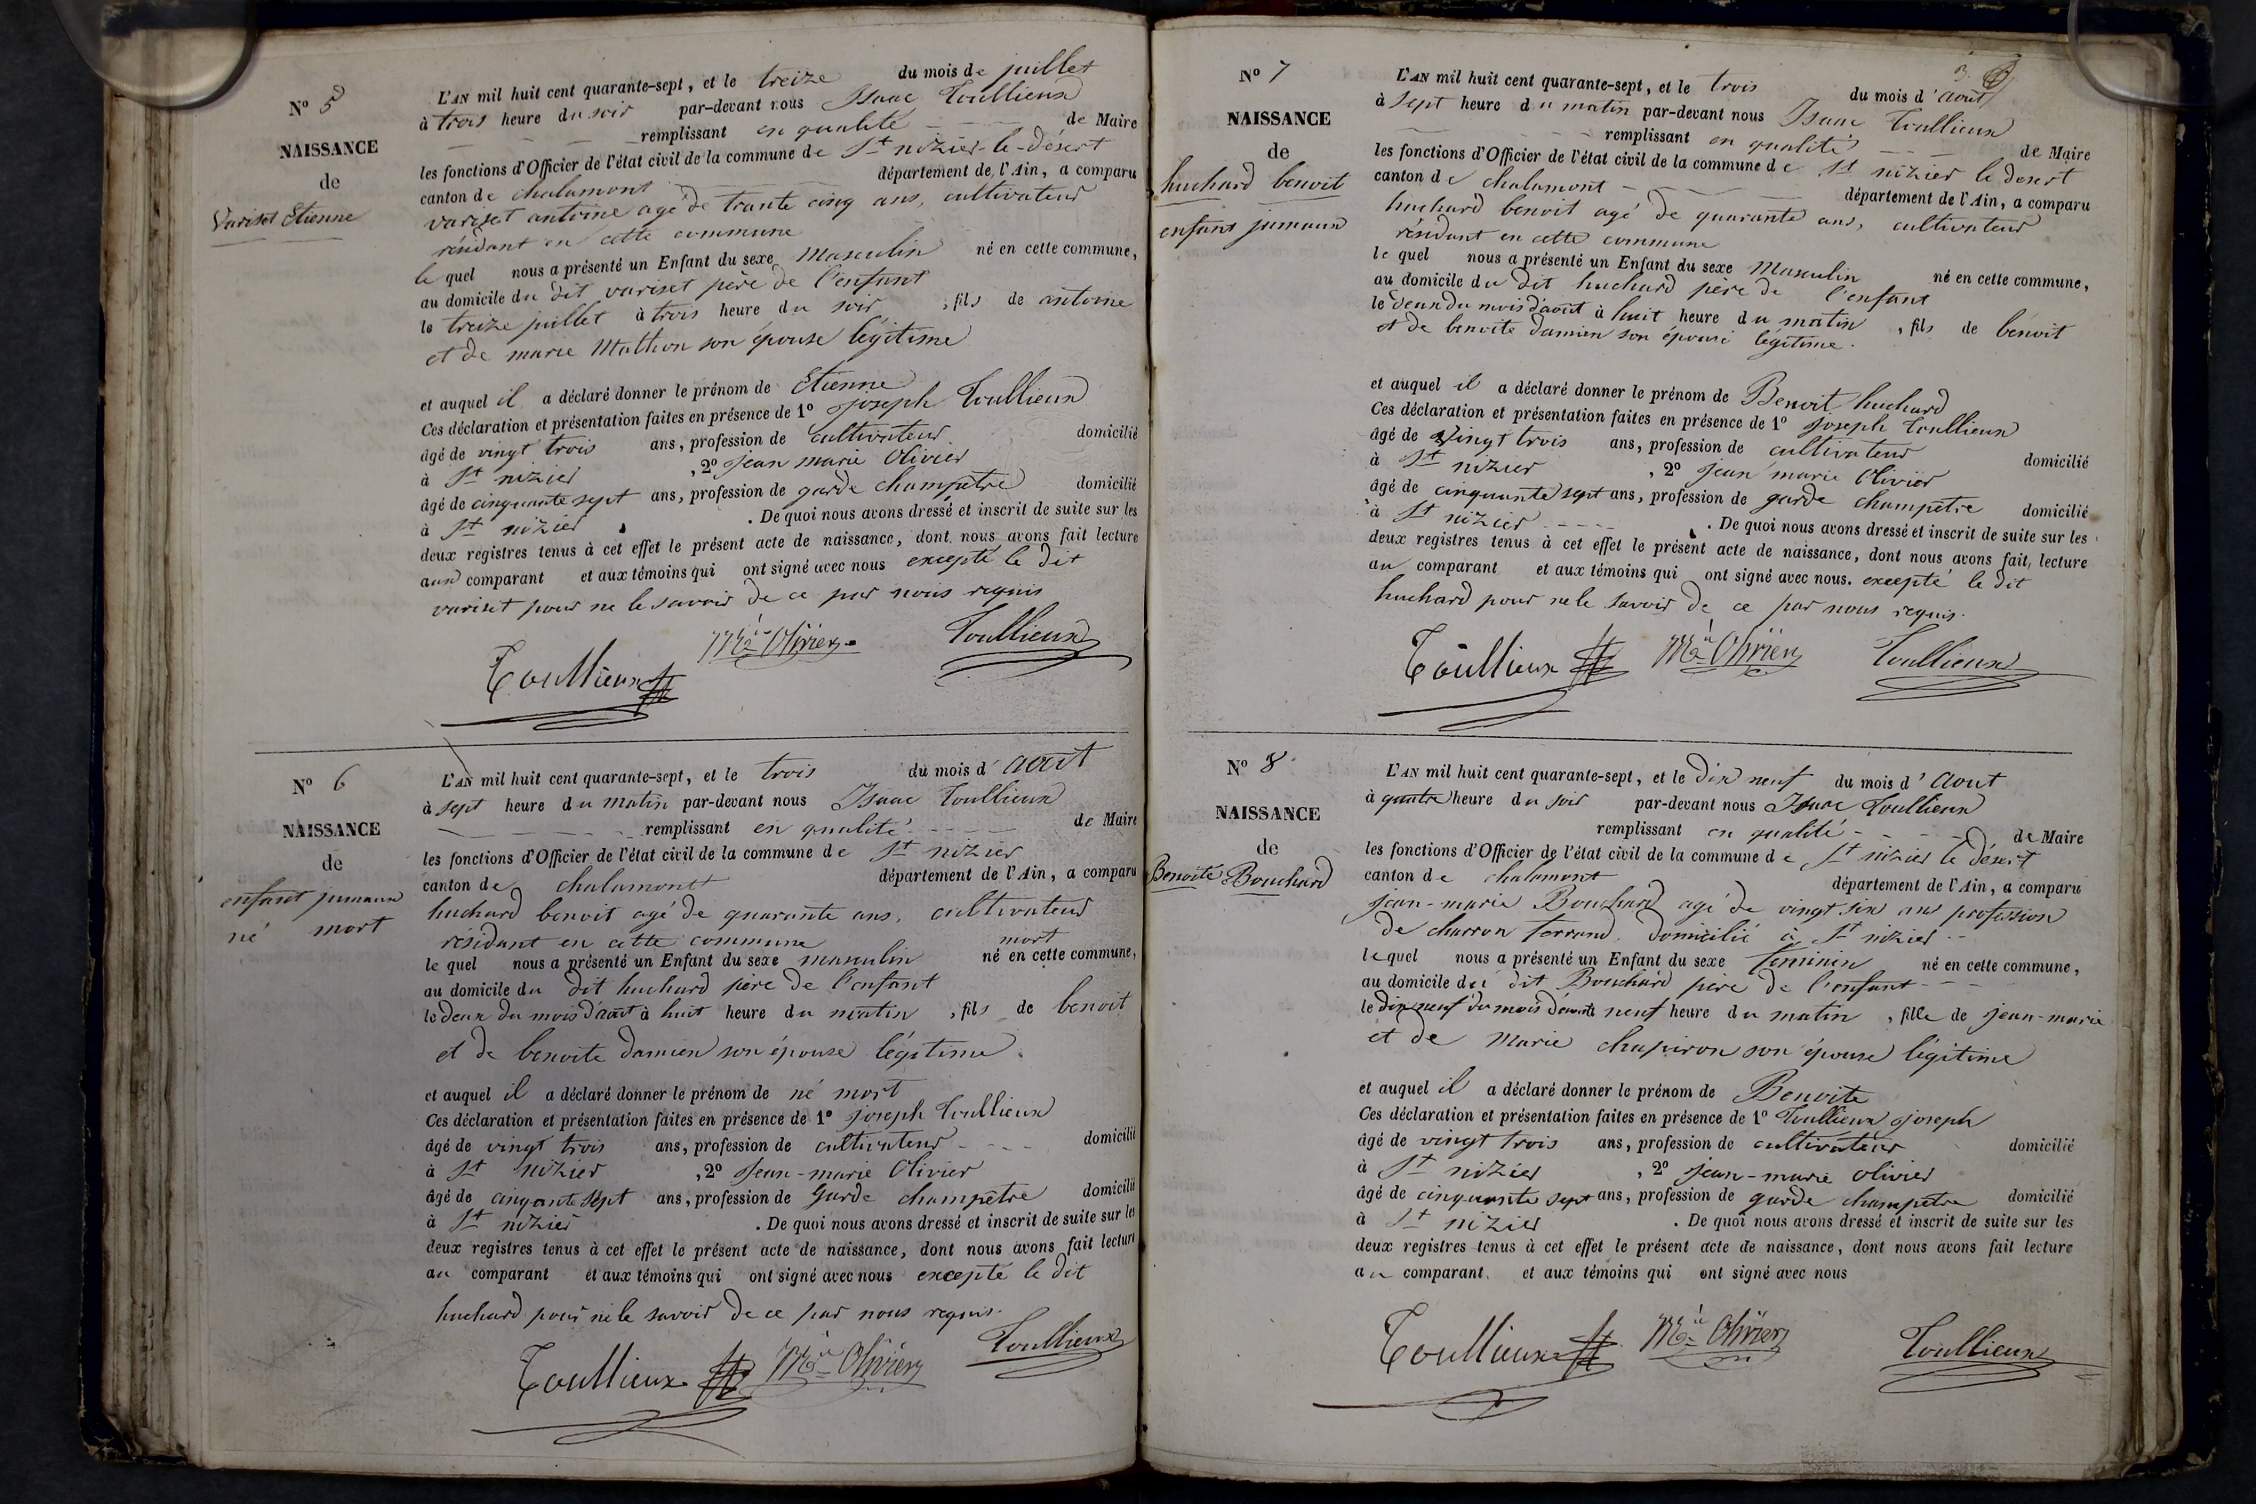 Nº 5
NAISSANCE
de
Variset Etienne
L'AN mil huit cent quarante-sept, et le treize du mois de juillet
à trois heure du soir par-devant nous Isaac Toullieux
remplissant en qualité de Maire
les fonctions d'Officier de l'état civil de la commune de St nizier-le-désert
canton de chalamont département de l'Ain, a comparu
variset antoine agé de trante cinq ans, cultivateur
résidant en cette commune
le quel nous a présenté un Enfant du sexe Masculin né en cette commune,
au domicile du dit variset père de l'enfant
le treize juillet à trois heure du soir, fils de antoine
et de marie Mathon son épouse légitime
et auquel il a déclaré donner le prénom de Etienne
Ces déclaration et présentation faites en présence de 1º Joseph Toullieux
âgé de vingt trois ans, profession de cultivateur domicilié
à St nizier, 2º Jean marie Olivier
âgé de cinquante sept ans, profession de garde champetre domicilié
à St nizier. De quoi nous avons dressé et inscrit de suite sur les
deux registres tenus à cet effet le présent acte de naissance, dont nous avons fait lecture
aux comparant et aux témoins qui ont signé avec nous excepté le dit
variset pour ne le savoir de ce par nous requis
Toullieux Mie Olivier Toullieux
Nº 6
NAISSANCE
de
enfant jumaux
né mort
L'AN mil huit cent quarante-sept, et le trois du mois d'aout
à sept heure du matin par-devant nous Isaac Toullieux
remplissant en qualité de Maire
les fonctions d'Officier de l'état civil de la commune de St nizier
canton de chalamont département de l'Ain, a comparu
huchard benoit agé de quarante ans, cultivateur
résidant en cette commune mort
le quel nous a présenté un Enfant du sexe masculin né en cette commune,
au domicile du dit huchard père de l'enfant
le deux du mois d'août à huit heure du matin, fils de benoit
et de benoite damien son épouse légitime.
et auquel il a déclaré donner le prénom de né mort
Ces déclaration et présentation faites en présence de 1º Joseph Toullieux
âgé de vingt trois ans, profession de cultivateur domicilié
à St nizier, 2º Jean-marie Olivier
âgé de cinqante sept ans, profession de garde champetre domicilié
à St nizier. De quoi nous avons dressé et inscrit de suite sur les
deux registres tenus à cet effet le présent acte de naissance, dont nous avons fait lecture
au comparant et aux témoins qui ont signé avec nous excepté le dit
huchard pour ne le savoir de ce par nous requis.
Toullieux Mie Olivier Toullieux
3
Nº 7
NAISSANCE
de
huchard benoit
enfant jumaux
L'AN mil huit cent quarante-sept, et le trois du mois d'août
à sept heure du matin par-devant nous Isaac Toullieux
remplissant en qualité de Maire
les fonctions d'Officier de l'état civil de la commune de St nizier le desert
canton de chalamont département de l'Ain, a comparu
huchard benoit agé de quarante ans, cultivateur
résidant en cette commune
le quel nous a présenté un Enfant du sexe Masculin né en cette commune,
au domicile du dit huchard père de l'enfant
le deux du mois d'août à huit heure du matin, fils de bénoit
et de benoite damien son épouse légitime.
et auquel il a déclaré donner le prénom de Benoit huchard
Ces déclaration et présentation faites en présence de 1º Joseph Toullieux
âgé de vingt trois ans, profession de cultivateur domicilié
à St nizier, 2º Jean marie Olivier
âgé de cinquante sept ans, profession de garde champetre domicilié
à St nizier. De quoi nous avons dressé et inscrit de suite sur les
deux registres tenus à cet effet le présent acte de naissance, dont nous avons fait lecture
au comparant et aux témoins qui ont signé avec nous. excepté le dit
huchard pour ne le savoir de ce par nous requis.
Toullieux Mie Olivier Toullieux
Nº 8
NAISSANCE
de
Benoite Bouchard
L'AN mil huit cent quarante-sept, et le dix neuf du mois d'aout
à quatre heure du soir par-devant nous Isaac Toullieux
remplissant en qualité de Maire
les fonctions d'Officier de l'état civil de la commune de St nizier le désert
canton de chalamont département de l'Ain, a comparu
jean-marie Bouchard agé de vingt six ans profession
de charron domicilié à St nizier
lequel nous a présenté un Enfant du sexe féminin né en cette commune,
au domicile du dit Bouchard père de l'enfant
le dix neuf du mois neuf heure du matin, fille de jean-marie
et de Marie chapiron son épouse légitime
et auquel il a déclaré donner le prénom de Benoite
Ces déclaration et présentation faites en présence de 1º Toullieux Joseph
âgé de vingt trois ans, profession de cultivateur domicilié
à St nizier, 2º Jean-marie Olivier
âgé de cinquante sept ans, profession de garde champetre domicilié
à St nizier. De quoi nous avons dressé et inscrit de suite sur les
deux registres tenus à cet effet le présent acte de naissance, dont nous avons fait lecture
au comparant et aux témoins qui ont signé avec nous
Toullieux Mie Olivier Toullieux